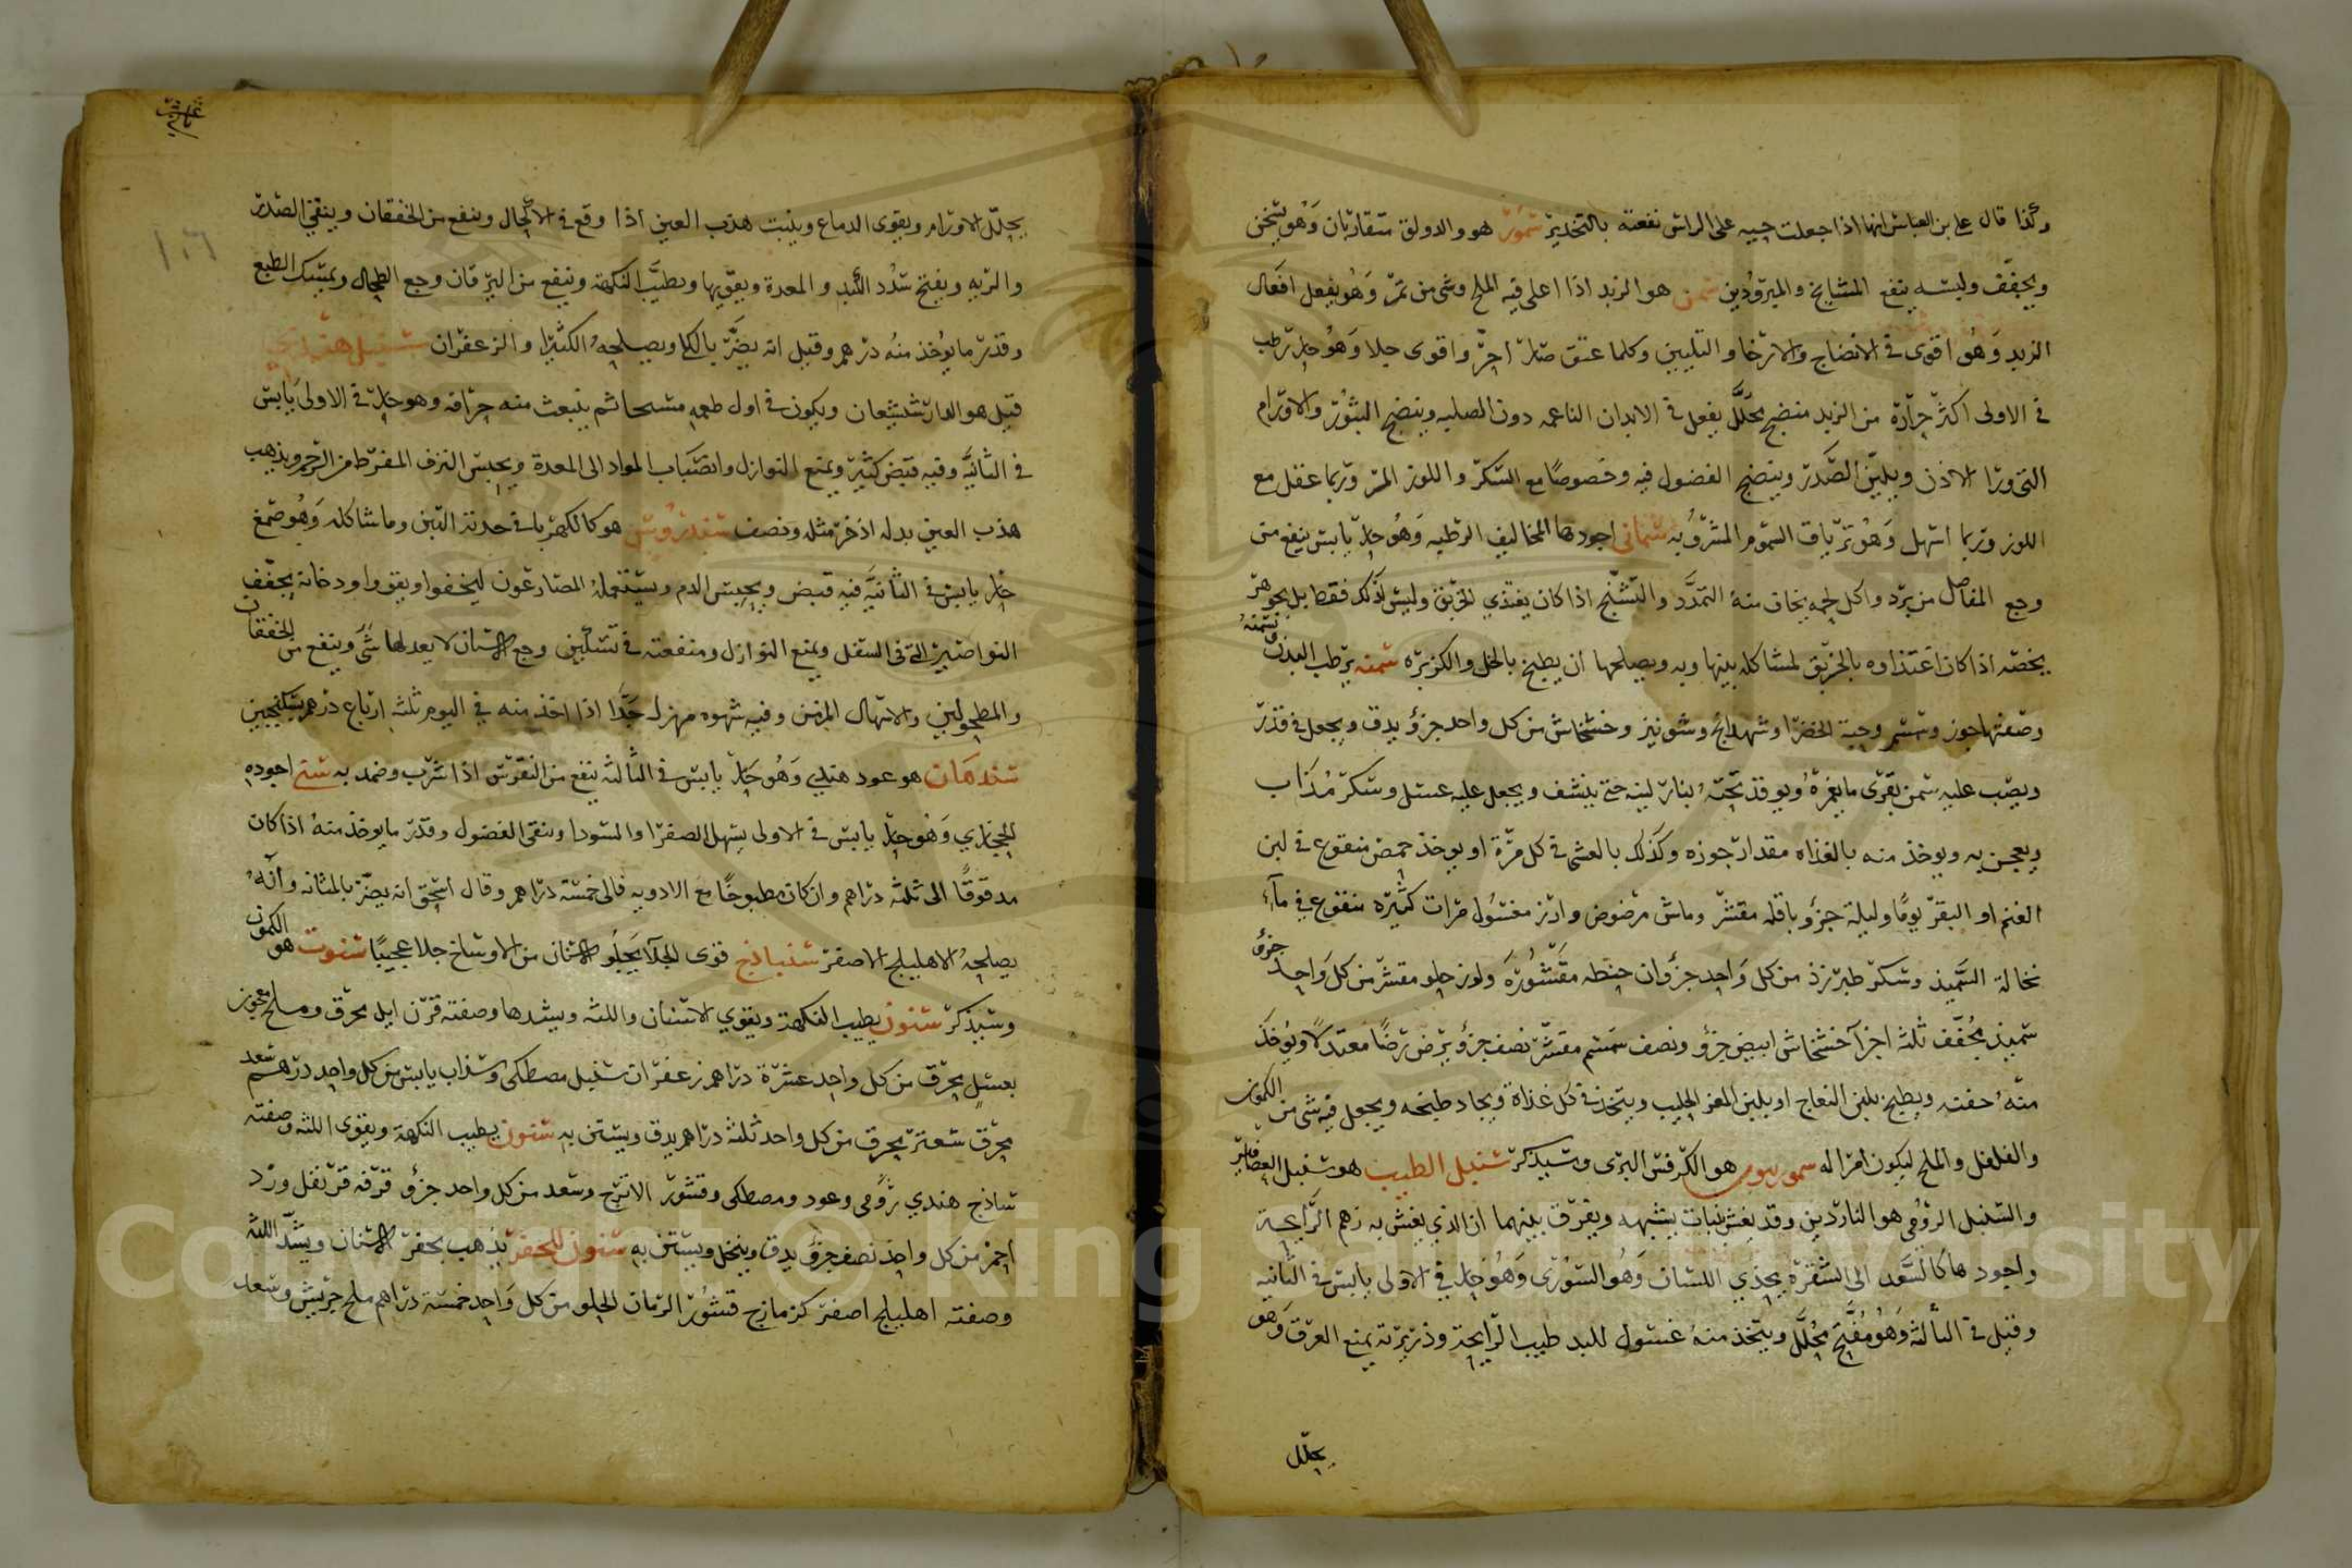 وكذا قال علي بن العباس انها اذا جعلت حيه على الراس نفعته بالتخدير سمور هو والدولق متقاربان وهو يسخن
ويجفف ولبسه ينفع المشايخ والمبرودين سمن هو الزبد اذا اغلي فيه الملح وشي من تمر وهو يفعل افعال
الزبد وهو اقوى في الانضاج والارخا والتليين وكلما عتق صار احر واقوى جلا وهو حار رطب
في الاولى اكثر حرارة من الزبد منضج محلل يفعل في الابدان الناعمه دون الصلبه وينضج البثور والاورام
التي ورا الاذن ويلين الصدر وينضج الفضول فيه وخصوصا مع السكر واللوز المر وربما عقل مع
اللوز وربما اسهل وهو ترياق السموم المشروبه سماني اجودها المخاليف الرطبه وهو حار يابس ينفع من
وجع المفاصل من برد واكل لحمه يخاف منه التمدد والتشنج اذا كان يغتذي الخربق وليس لذلك فقط بل بجوهر
يخصه اذا كان اغتذاوه بالخربق لمشاكله بينها وبه ويصلحها ان يطبخ بالخل والكزبره سمنه يرطب البدن ويسمنه
وصفتها جوز وسمسم وحبة الخضرا وشهدانج وشونيز وخشخاش من كل واحد جزؤ يدق ويجعل في قدر
ويصب عليه سمن بقرى ما يغمره ويوقد تحته بنار لينه حتى ينشف ويجعل عليه عسل وسكر مذاب
ويعجن به ويوخذ منه بالغداه مقدار جوزه وكذلك بالعشي في كل مرة او يوخذ حمص منقوع في لبن
الغنم او البقر يوما وليلة جزؤ باقله مقشر وماش مرضوض وارز مغسول مرات كثيره منقوع في مآء
نخالة السميذ وسكر طبرزذ من كل واحد جزؤان حنطه مقشوره ولوز حلو مقشر من كل واحد جزؤ
سميذ مجفف ثلثه اجزآ خشخاش ابيض جزؤ ونصف سمسم مقشر نصف جزؤ يرض رضا معتدلا ويوخذ
منه حفنه ويطبخ بلبن النعاج او بلبن المعز الحليب ويتخذ في كل غداة ويجاد طبخه ويجعل فيه شي من الكمون
والفلفل والملح ليكون امرا له سموريون هو الكرفس البرى وسيذكر سنبل الطيب هو سنبل العصافير
والسنبل الرومي هو الناردين وقد يغش بنبات يشبهه ويفرق بينهما ان الذي يغش به زهم الرايحة
واجودها كالسعد الى الشقرة يحذي اللسان وهو السوري وهو حار في الاولى يابس في الثانيه
وقيل في الثالثه وهو مفتح محلل ويتخذ منه غسول لليد طيب الرايحة وذريرته يمنع العرق وهو
يحلل
يحلل الاورام ويقوى الدماغ وينبت هدب العين اذا وقع في الاكحال وينفع من الخفقان وينقي الصدر
والريه ويفتح سدد الكبد والمعدة ويقويها ويطيب النكهة وينفع من اليرقان وجع الطحال ويمسك الطبع
وقدر ما يوخذ منه درهم وقيل انه يضر بالكلى ويصلحه الكثيرا والزعفران سنبل هندي
قيل هو الدارشيشعان ويكون في اول طعمه مسحا ثم ينبعث منه حرافه وهو حار في الاولى يابس
في الثانيه وفيه قبض كثير ويمنع النوازل وانصباب المواد الى المعدة ويحبس النزف المفرط من الرحم ويذهب
هدب العين بدله اذخر مثله ونصف سندروس هو كالكهربا في حدته البين وما شاكله وهو صمغ
حار يابس في الثانيه فيه قبض ويحبس الدم ويستعمله المصارعون ليخفوا ويقووا ودخانه يجفف
النواصير التى في السفل ويمنع النوازل ومنفعته في تسكين وجع الاسنان لا يعدلها شى وينفع من الخفقان
والمطحولين والاسهال المزمن وفيه شهوه مهزل جدا اذا اخذ منه في اليوم ثلثه ارباع درهم بسكنجبين
سندهان هو عود هندي وهو حار يابس في الثالثه ينفع من النقرس اذا شرب وضمد به سنى اجوده
الحجازي وهو حار يابس في الاولى يسهل الصفرا والسودا وينقي الفضول وقدر ما يوخذ منه اذا كان
مدقوقا الى ثلثه دراهم وان كان مطبوخا مع الادويه فالى خمسة دراهم وقال اسحق انه يضر بالمثانه وانه
يصلحه الاهليلج الاصفر سنباذج قوى الجلآ يجلو الاسنان من الاوساخ جلا عجيبا سنوت هو الكمون
وسيذكر سنون يطيب النكهة ويقوي الاسنان واللثه ويشدها وصفته قرن ايل محرق وملح معجون
بعسل يحرق من كل واحد عشرة دراهم زعفران سنبل مصطكى وسذاب يابس من كل واحد درهم سعد
محرق سعتر يحرق من كل واحد ثلثه دراهم يدق ويستن به سنون يطيب النكهة ويقوى اللثه وصفته
ساذج هندي رومى وعود ومصطكى وقشور الاترج وسعد من كل واحد جزؤ قرفه قرنفل ورد
احمر من كل واحد نصف جزؤ يدق وينخل ويستن به سنون للحفر يذهب بحفر الاسنان ويشد اللثه
وصفته اهليلج اصفر كزمازج قشور الرمان الحلو من كل واحد خمسة دراهم ملح جريش وسعد
Copyright © King Saud University